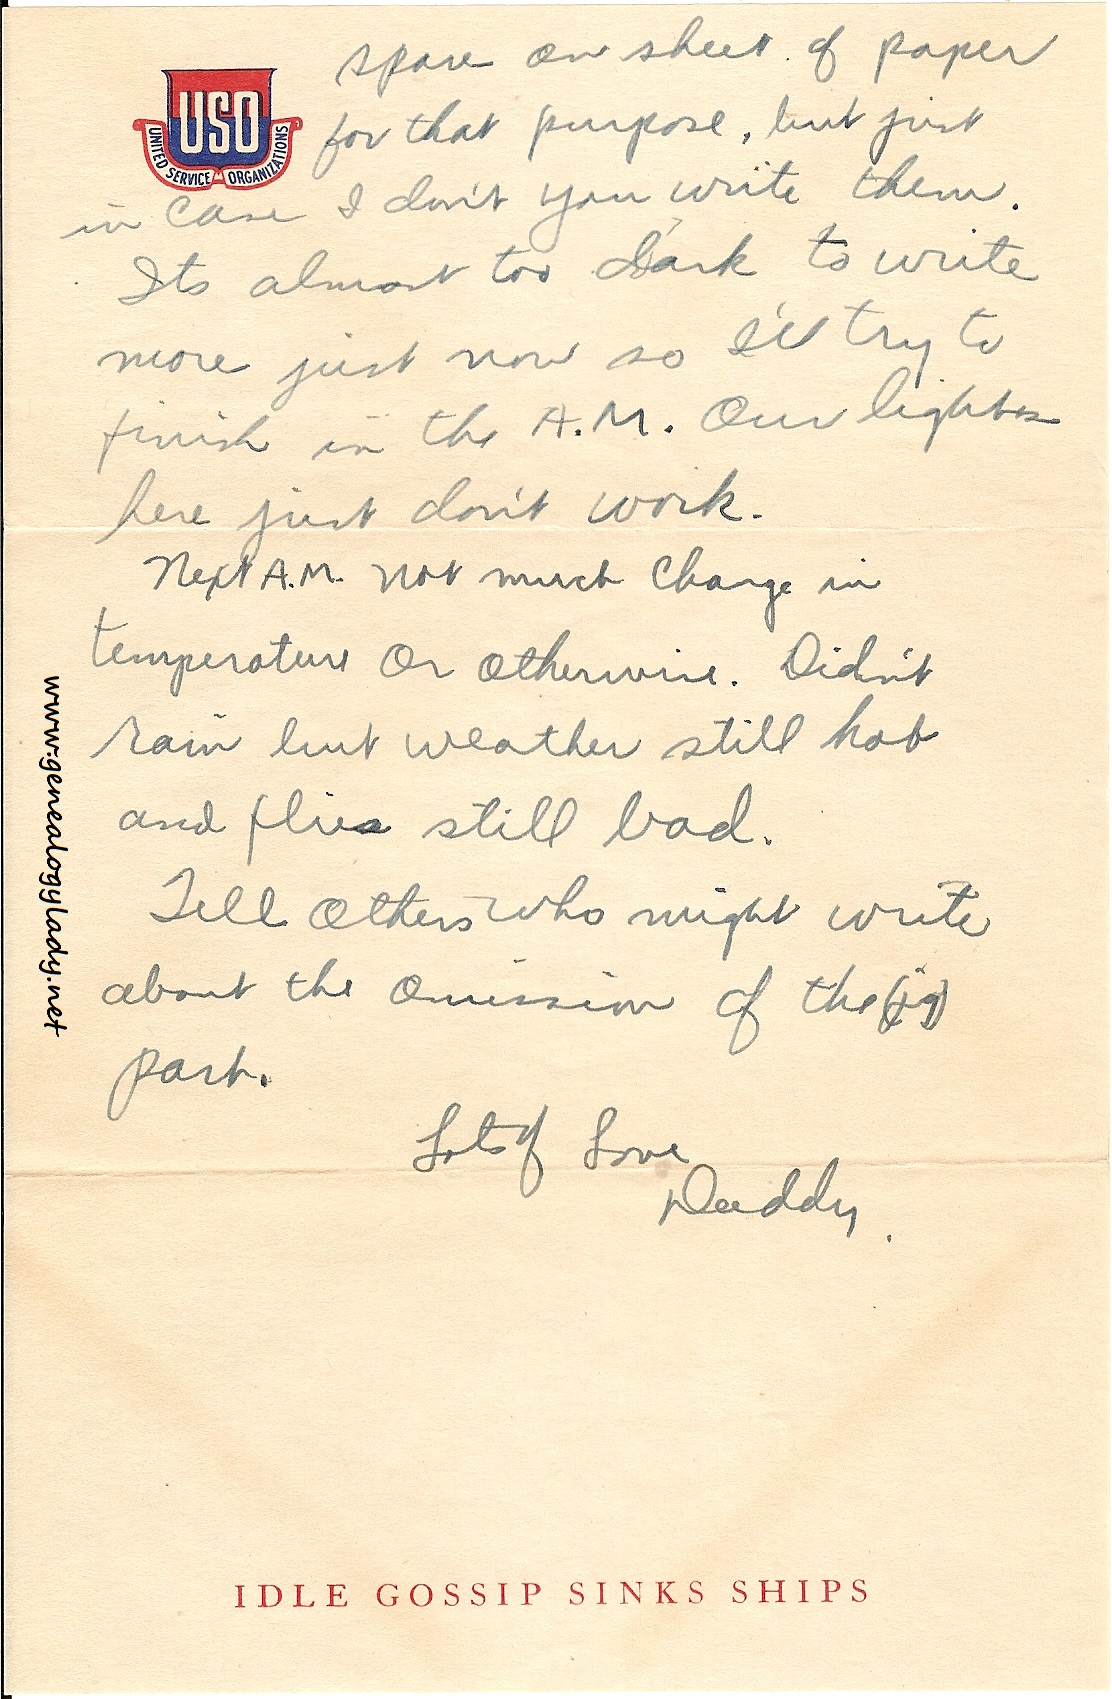 USO
UNITED SERVICE ORGANIZATIONS
spare on sheet of paper
for that purpose, but just
in case I don't you write them.
Its almost too dark to write
more just now so I'll try to
finish in the A.M. Our lights
here just don't work.
Next A.M. Not much change in
temperature or otherwise. Didn't
rain but weather still hot
and flies still bad.
Tell others who might write
about the omission of the (jg)
part.
Lots of Love
Daddy.
www.genealogylady.net
IDLE GOSSIP SINKS SHIPS